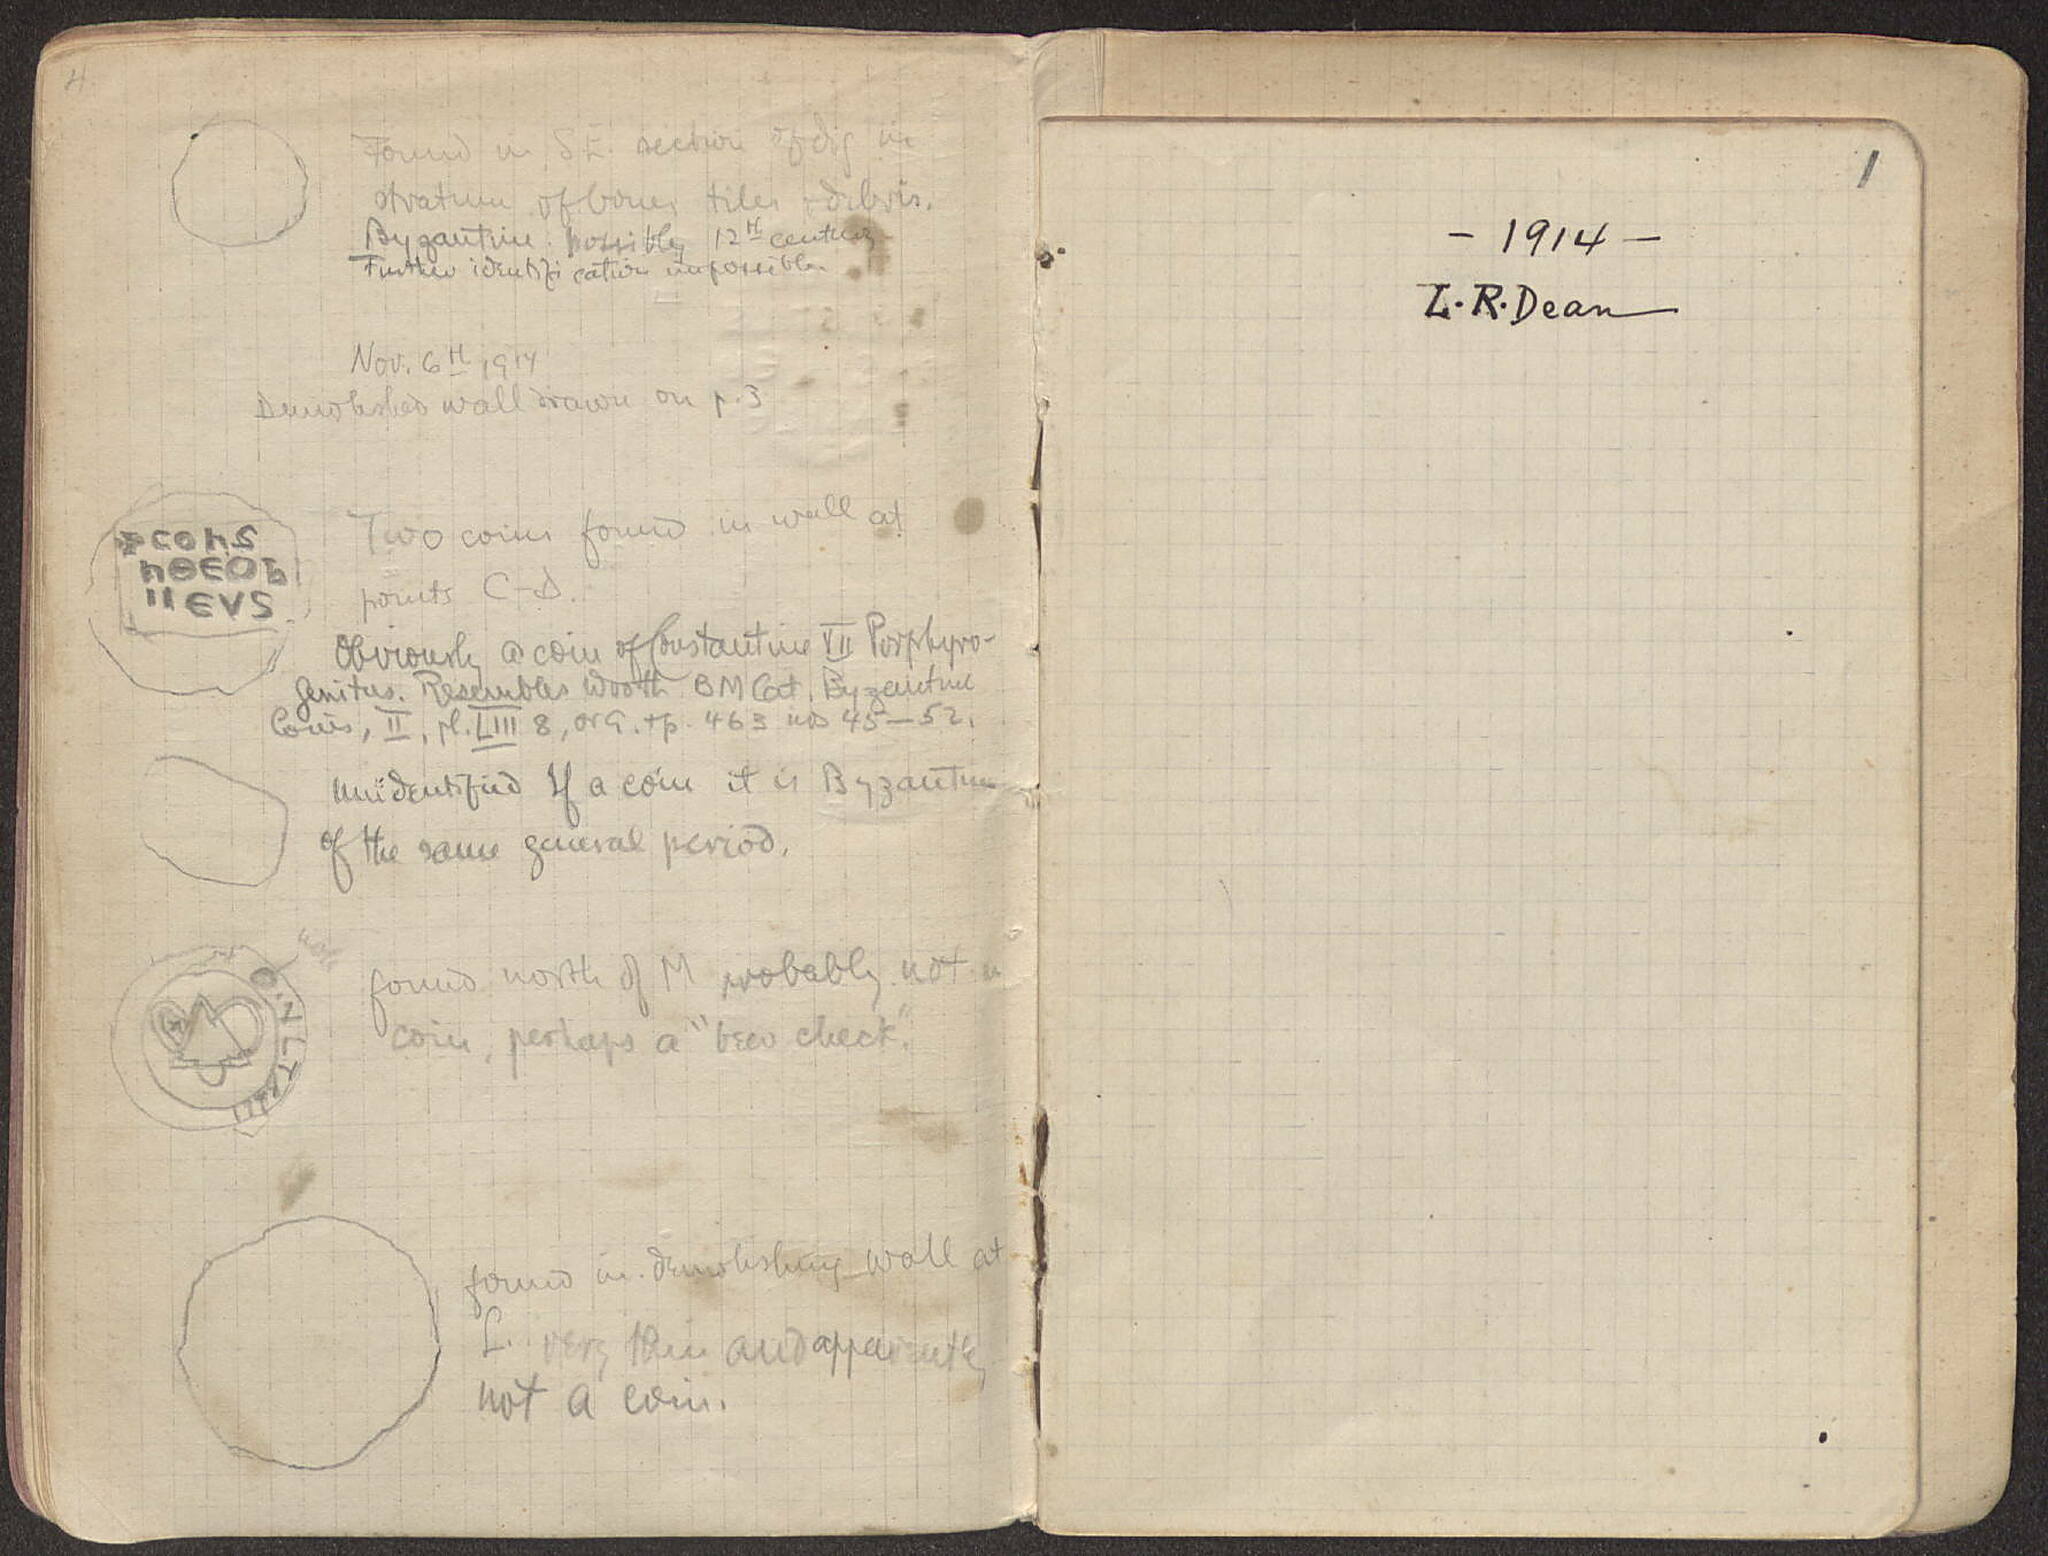 4
Found in S.E. section of dig in
stratum of bones tiles + debris.
Byzantine. possibly 12th century
Further identification impossible.
Nov. 6th 1914
Demolished wall drawn on p. 3
Two coins found in wall at
points C-D.
+CONS
ҺΘЄΟЬ
ΙΙЄVS
Obviously a coin of Constantine VII Porphyro-
genitus. Resembles Wroth BM Cat. Byzantine
Coins, II, pl. LIII 8, or 9. + p. 463 nos 45-52.
Unidentified If a coin it is Byzantine
of the same general period.
hole
found north of M probably not a
coin, perhaps a "beer check."
found in demolishing wall at
L. very thin and apparently
not a coin.
1
- 1914 -
L. R. Dean